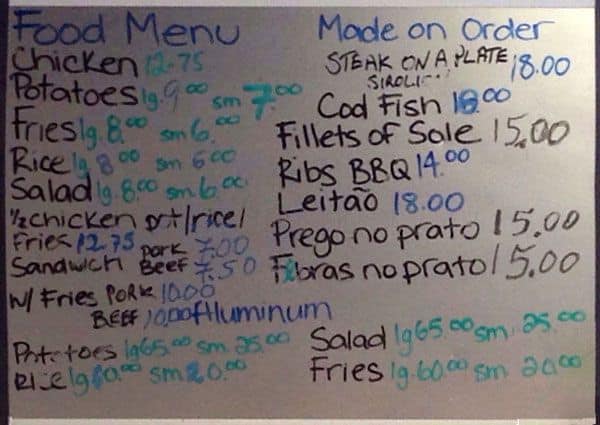 Food Menu
Chicken 12.75
Potatoes lg. 9.00 sm 7.00
Fries lg. 8.00 sm 6.00
Rice lg 8.00 sm 6.00
Salad lg. 8.00 sm 6.00
½ chicken pot/rice/
Fries 12.75
Sandwich Pork 7.00
Beef 7.50
w/ Fries Pork 10.00
Beef 10.00
Alluminum
Potatoes lg 65.00 sm. 25.00
Rice lg 60.00 sm 20.00
Made on Order
STEAK ON A PLATE 18.00
Cod Fish 18.00
Fillets of Sole 15.00
Ribs BBQ 14.00
Leitão 18.00
Prego no prato 15.00
Febras no prato 15.00
Salad lg 65.00 sm. 25.00
Fries lg. 60.00 sm 20.00